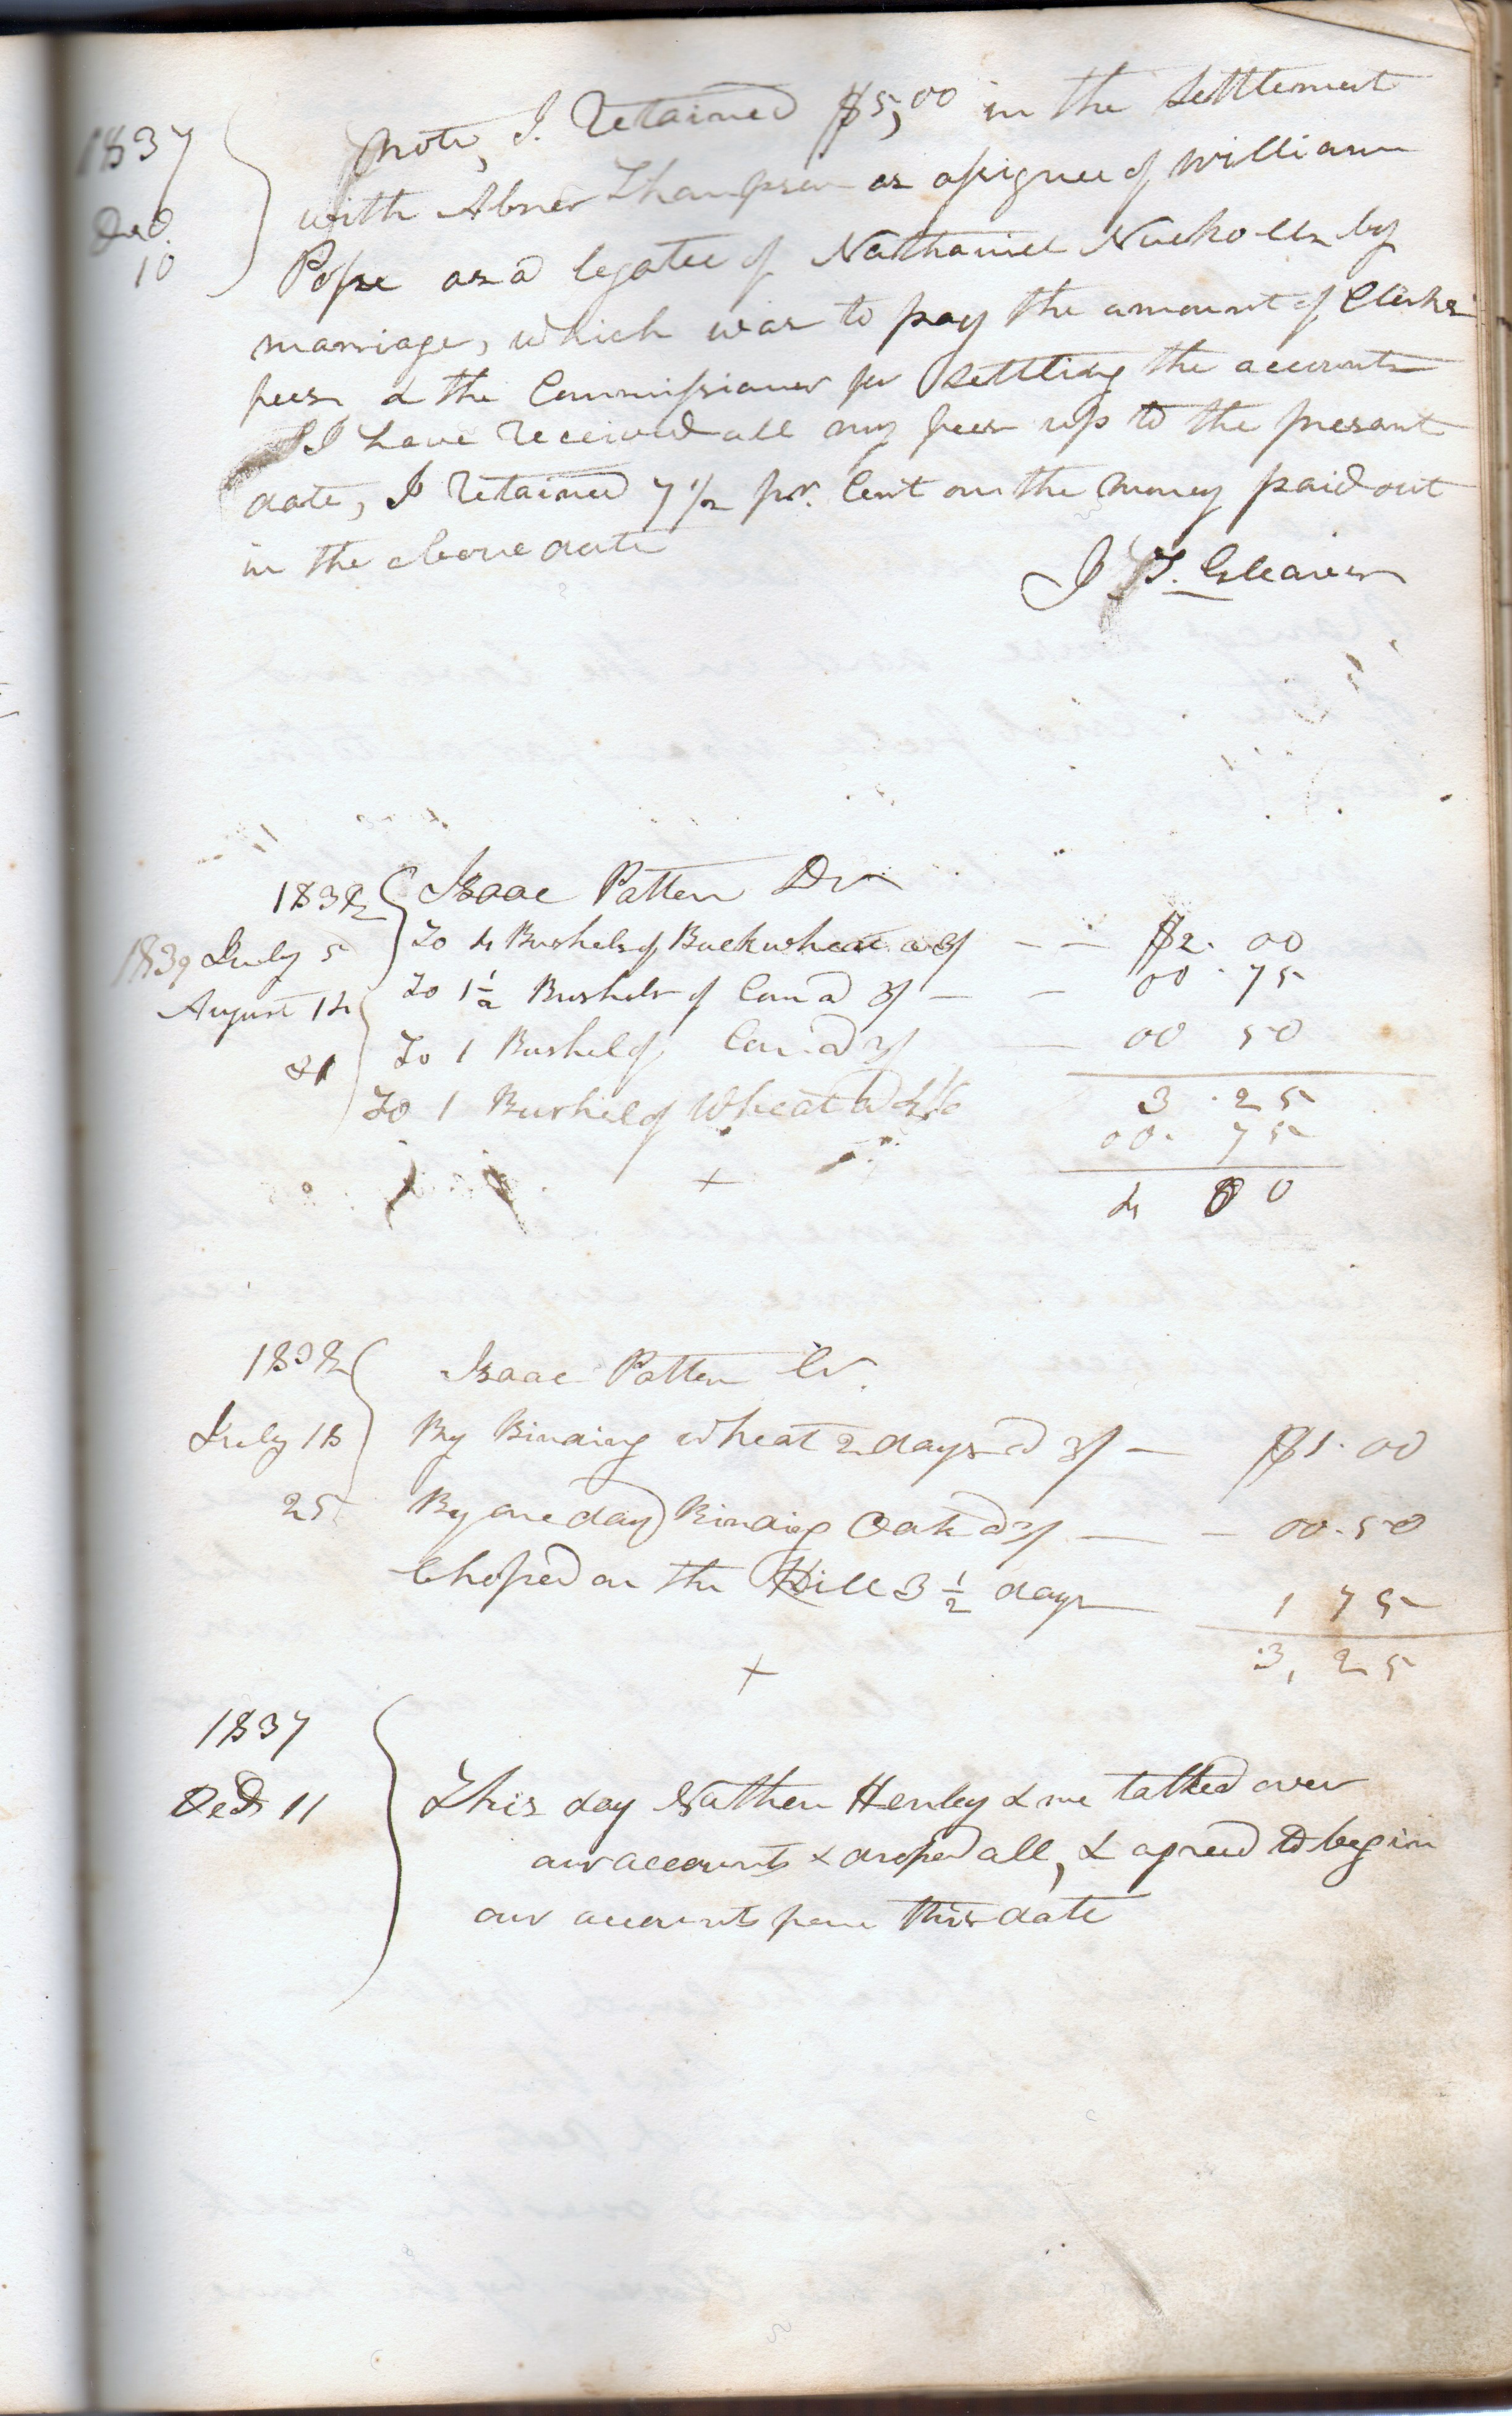 1837 Note, I. Retained $5,00 in the settlement
Decr. 10 with Abner Thompson as assignee of William
Pope as a legatee of Nathaniel Nuckolls by
marriage, which was to pay the amount of Clerks
fees & the Commissioner for settling the accounts
I have Received all my fees up to the presant
date, I Retained 7 1/2 pr. Cent on the money paid out
in the above date
J T. Cleaver
1838 Isaac Patten Dr
1839 July 5 To 4 Bushels of Buckwheat a 3/ — — $2. 00
August 14 To 1 1/2 Bushels of Corn a 3/ — — 00. 75
21 To 1 Bushel of Corn a 3/ — 00 50
3. 25
To 1 Bushel of Wheat a 4/6 00. 75
4 00
+
1838 Isaac Patten Cr.
July 18 By Binding wheat 2 days a 3/ — $1. 00
25 By one day Binding Oats a 3/ — — 00. 50
Choped on the Hill 3 1/2 days — 1 75
3, 25
+
1837
Decr 11 This day Nathen Henley & me talked over
our accounts & droped all, & agreed to begin
our accounts from this date